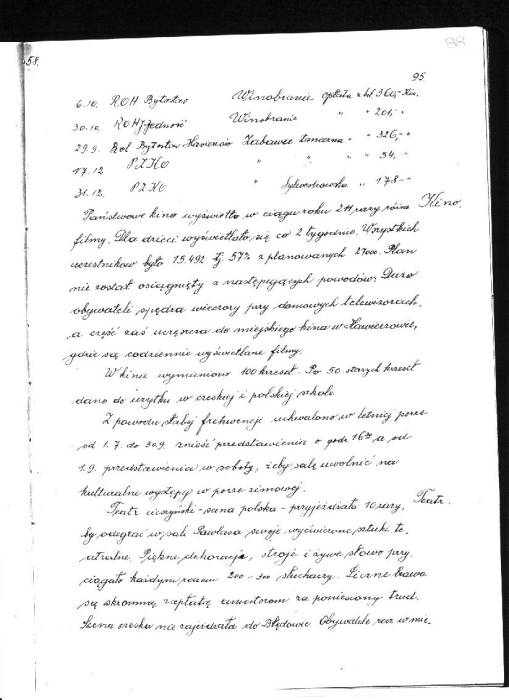 58.
88
95
6.10. ROH Bytostav Winobranie opłata w hd 360,- Kčs.
30.10. ROH Jedność Winobranie " " 201,- "
29.9. Bytostav Hawierzów Zabawa taneczna " " 326,- "
17.12 PZKO " " " " 54,- "
31.12. PZKO " Sylwestrowska " 178,- "
Państwowe kino wyświetla w ciągu roku 211 razy różne Kino.
filmy. Dla dzieci wyświetlało się co 2 tygodnie. Wszystkich
uczestników było 15.492 tj 57% z planowanych 27000. Plan
nie został osiągnięty z następujących powodów: Dużo
obywateli spędza wieczory przy domowych telewizorach,
a część zaś uczęszcza do miejskiego kina w Hawierzowie,
gdzie są codziennie wyświetlane filmy.
W kinie wymieniono 100 krzeseł. Po 50 starych krzeseł
dano do użytku w czeskiej i polskiej szkole.
Z powodu słabej frekwencji uchwalono w letniej porze
od 1.7. do 30.9. znieść przedstawienia o godz 16 a od
1.9. przedstawienia w soboty, żeby salę uwolnić na
kulturalne występy w porze zimowej.
Teatr cieszyński - scena polska - przyjeżdżała 10 razy, Teatr.
by odegrać w sali Pawlasa swoje wyćwiczone sztuki te-
atralne. Piękne dekoracje, stroje i żywe słowo przy
ciągało każdym razem 200 - 300 słuchaczy. Liczne brawa
są skromną zapłatą amatorom za poniesiony trud.
Scena czeska nie zajeżdżała do Błędowic. Obywatele raz w mie-